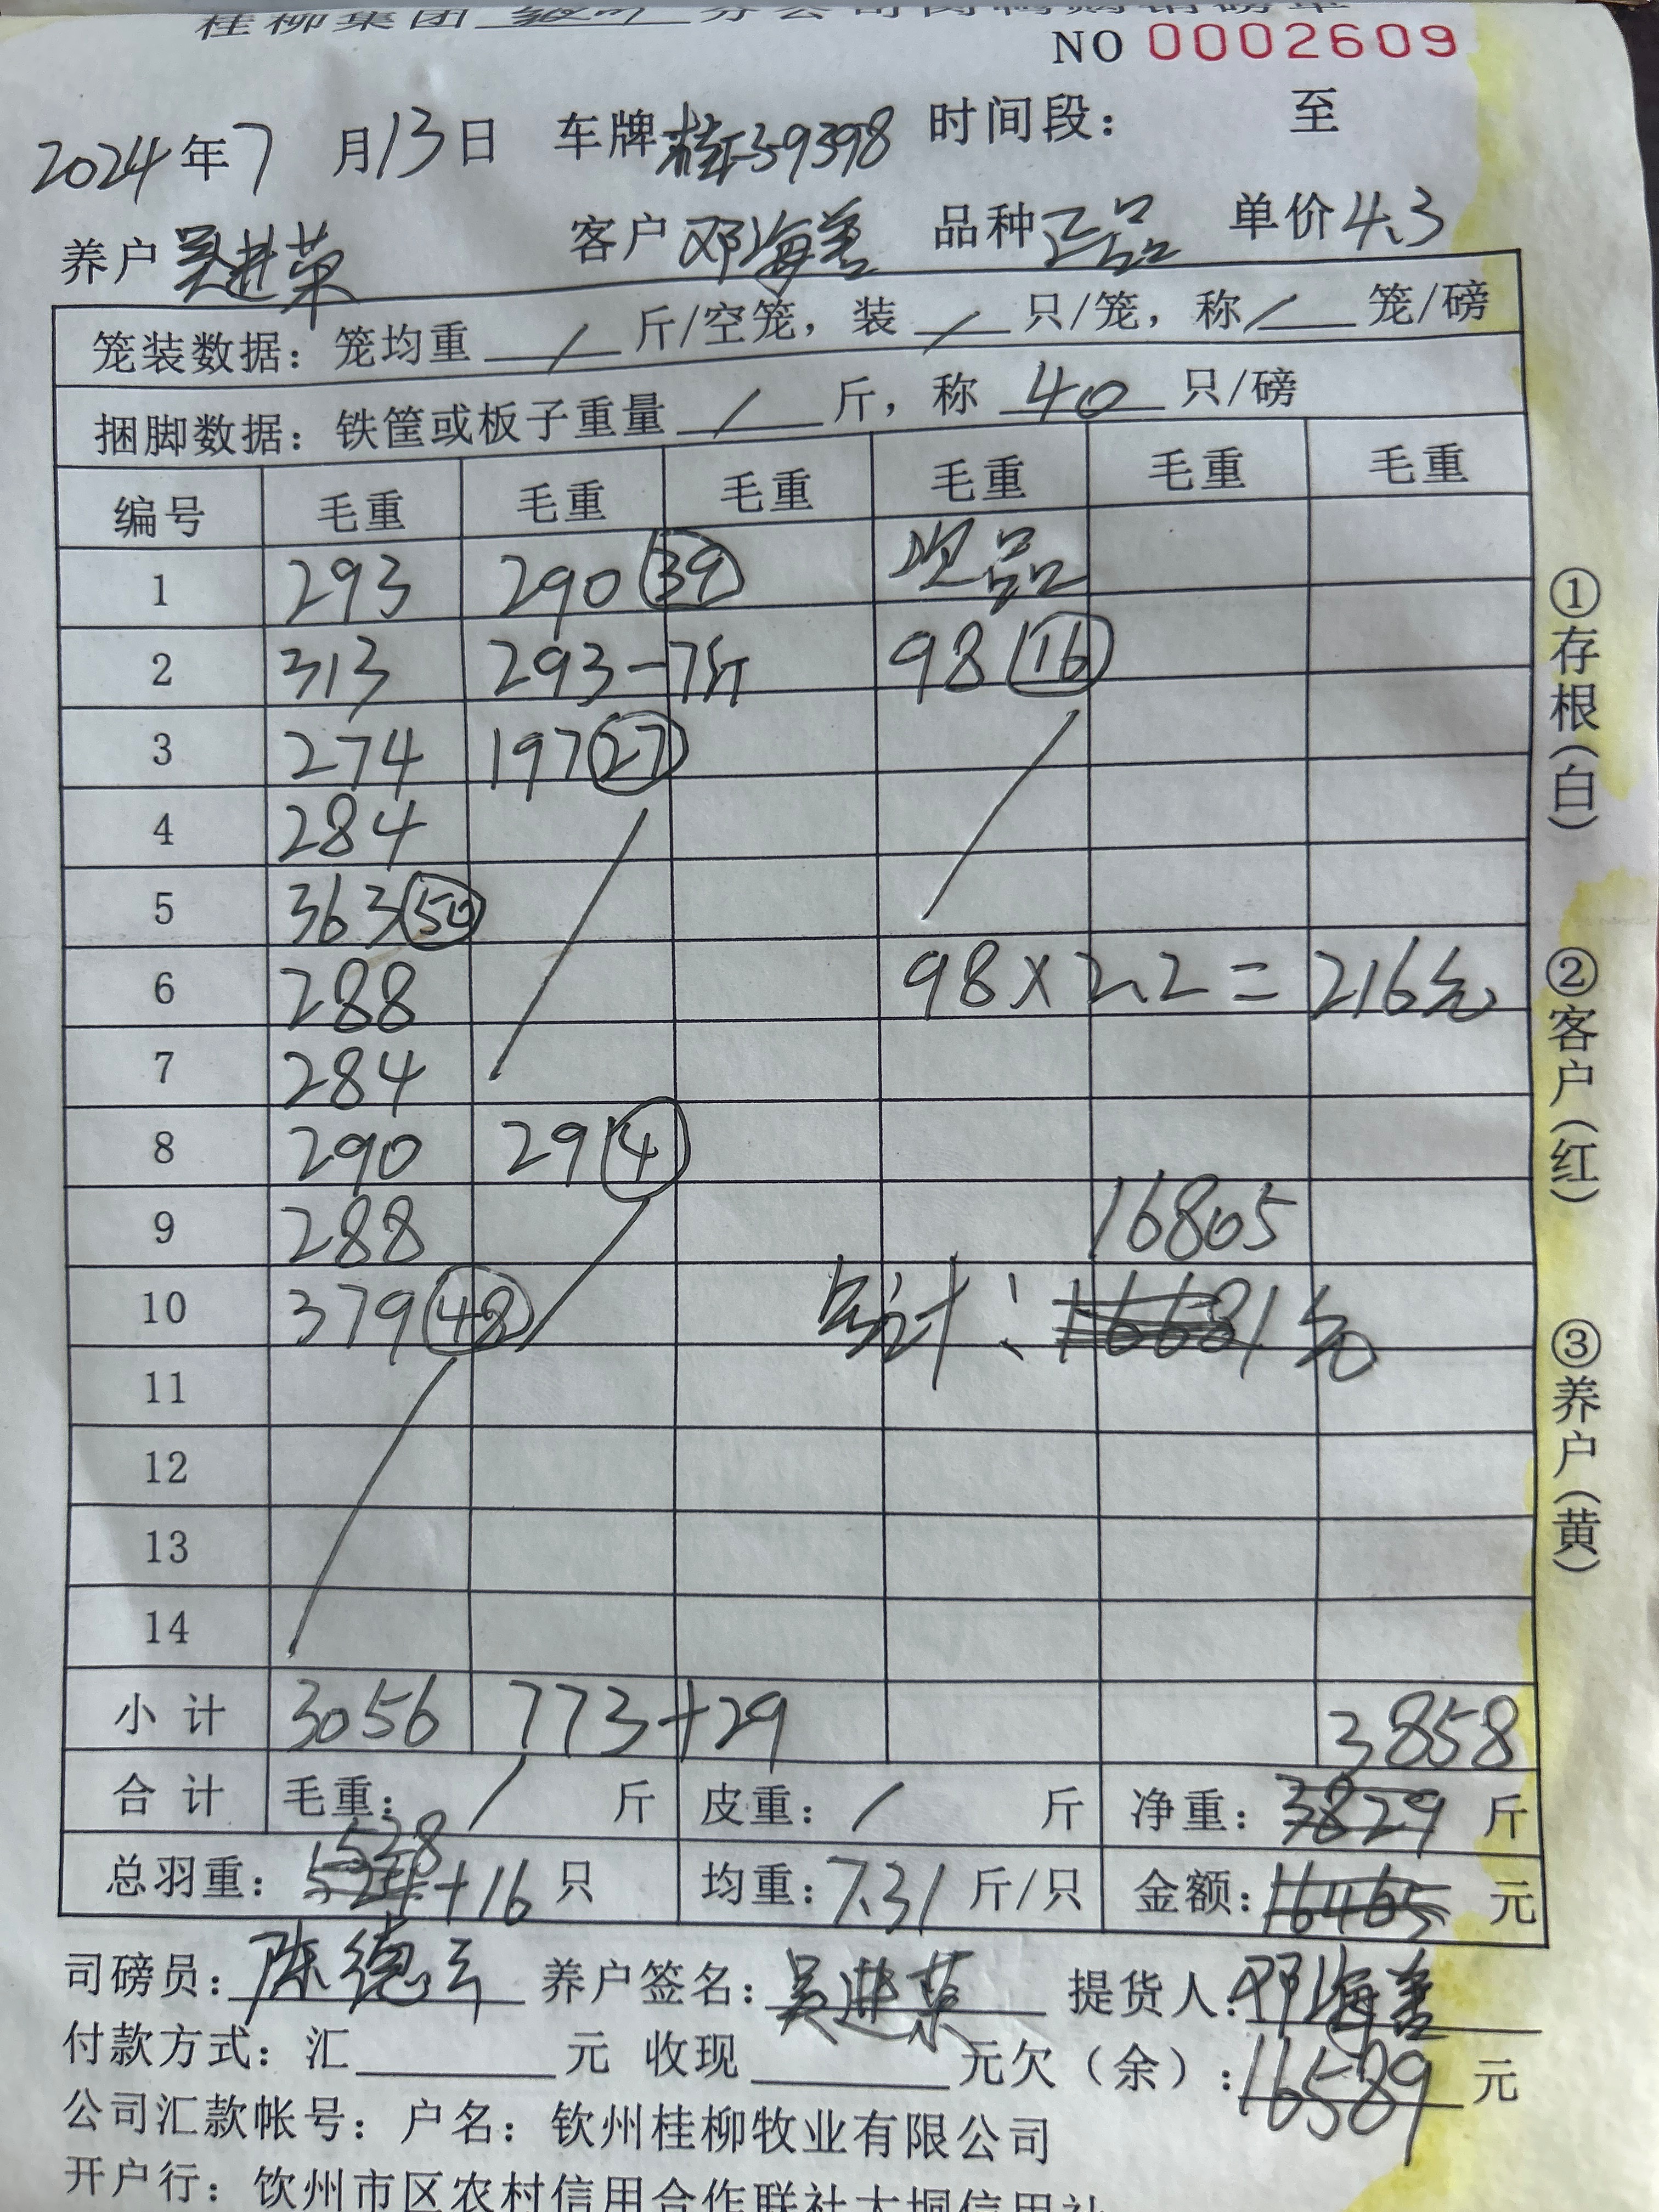 桂柳集团 分公司肉鸭购销磅单
NO 0002609
2024年7月13日 车牌 39398 时间段: 至
养户 吴进荣 客户 邓海善 品种 正品 单价 4.3
笼装数据: 笼均重 / 斤/空笼, 装 / 只/笼, 称 / 笼/磅
捆脚数据: 铁筐或板子重量 / 斤, 称 40 只/磅
编号 毛重 毛重 毛重 毛重 毛重 毛重
1 293 290 39 次品
2 313 293-7斤 98 16
3 274 197 27
4 284
5 363 50
6 288 98×2.2=216元
7 284
8 290 29 4
9 288 16805
10 379 48 总计: 16681元
11
12
13
14
小计 3056 773+29 3858
合计 毛重: / 斤 皮重: / 斤 净重: 3829 斤
528
总羽重: 524+16 只 均重: 7.31 斤/只 金额: 16465 元
司磅员: 陈德云 养户签名: 吴进荣 提货人: 邓海善
付款方式: 汇 元 收现 元 欠(余): 16589 元
公司汇款帐号: 户名: 钦州桂柳牧业有限公司
开户行: 钦州市区农村信用合作联社大垌信用社
①存根(白)
②客户(红)
③养户(黄)